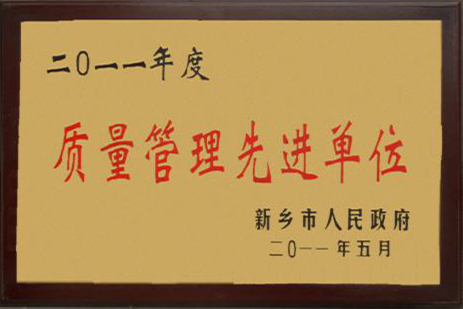 二〇一一年度
质量管理先进单位
新乡市人民政府
二〇一一年五月